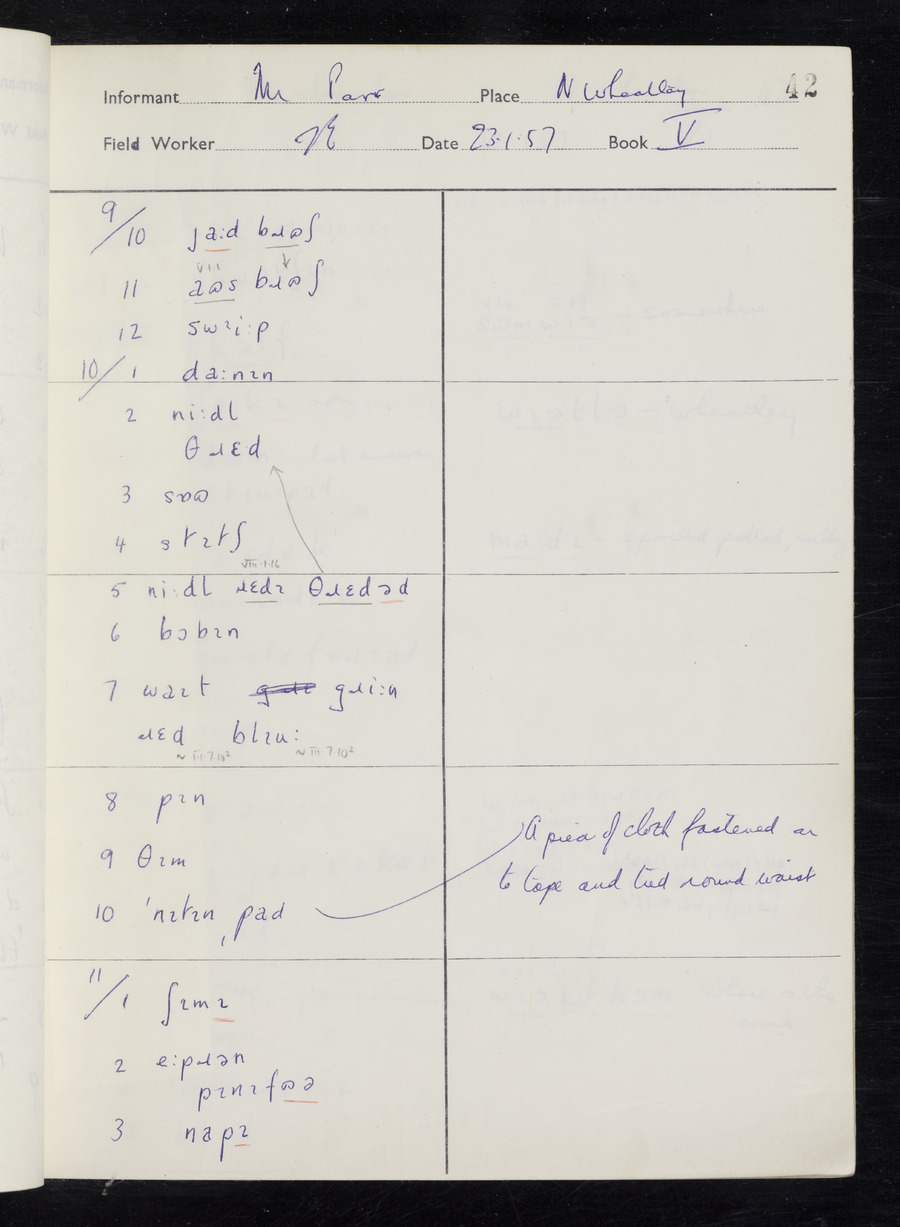 Informant Mr Parr Place N Wheatley 42
Field Worker Date 23.1.57 Book V
9/10 ja:d bɹʊʃ
11 aʊs bɹʊʃ
12 swɪi:p
10/1 da:nɪn
2 ni:dl
θɹɛd
3 sɒʊ
4 stɪtʃ
VIII.1.16
5 ni:dl ɹɛdɪ θɹɛdəd
6 bɔbɪn
7 waɪt gɹi:n
ɹɛd blɪu:
8 pɪn
9 θɪm
A piece of cloth fastened on
to tape and tied round waist
10 ˈnɪtɪn ˌpad
11/1 ʃɪmɪ
2 e:pɹən
pɪnɪfʊə
3 napɪ